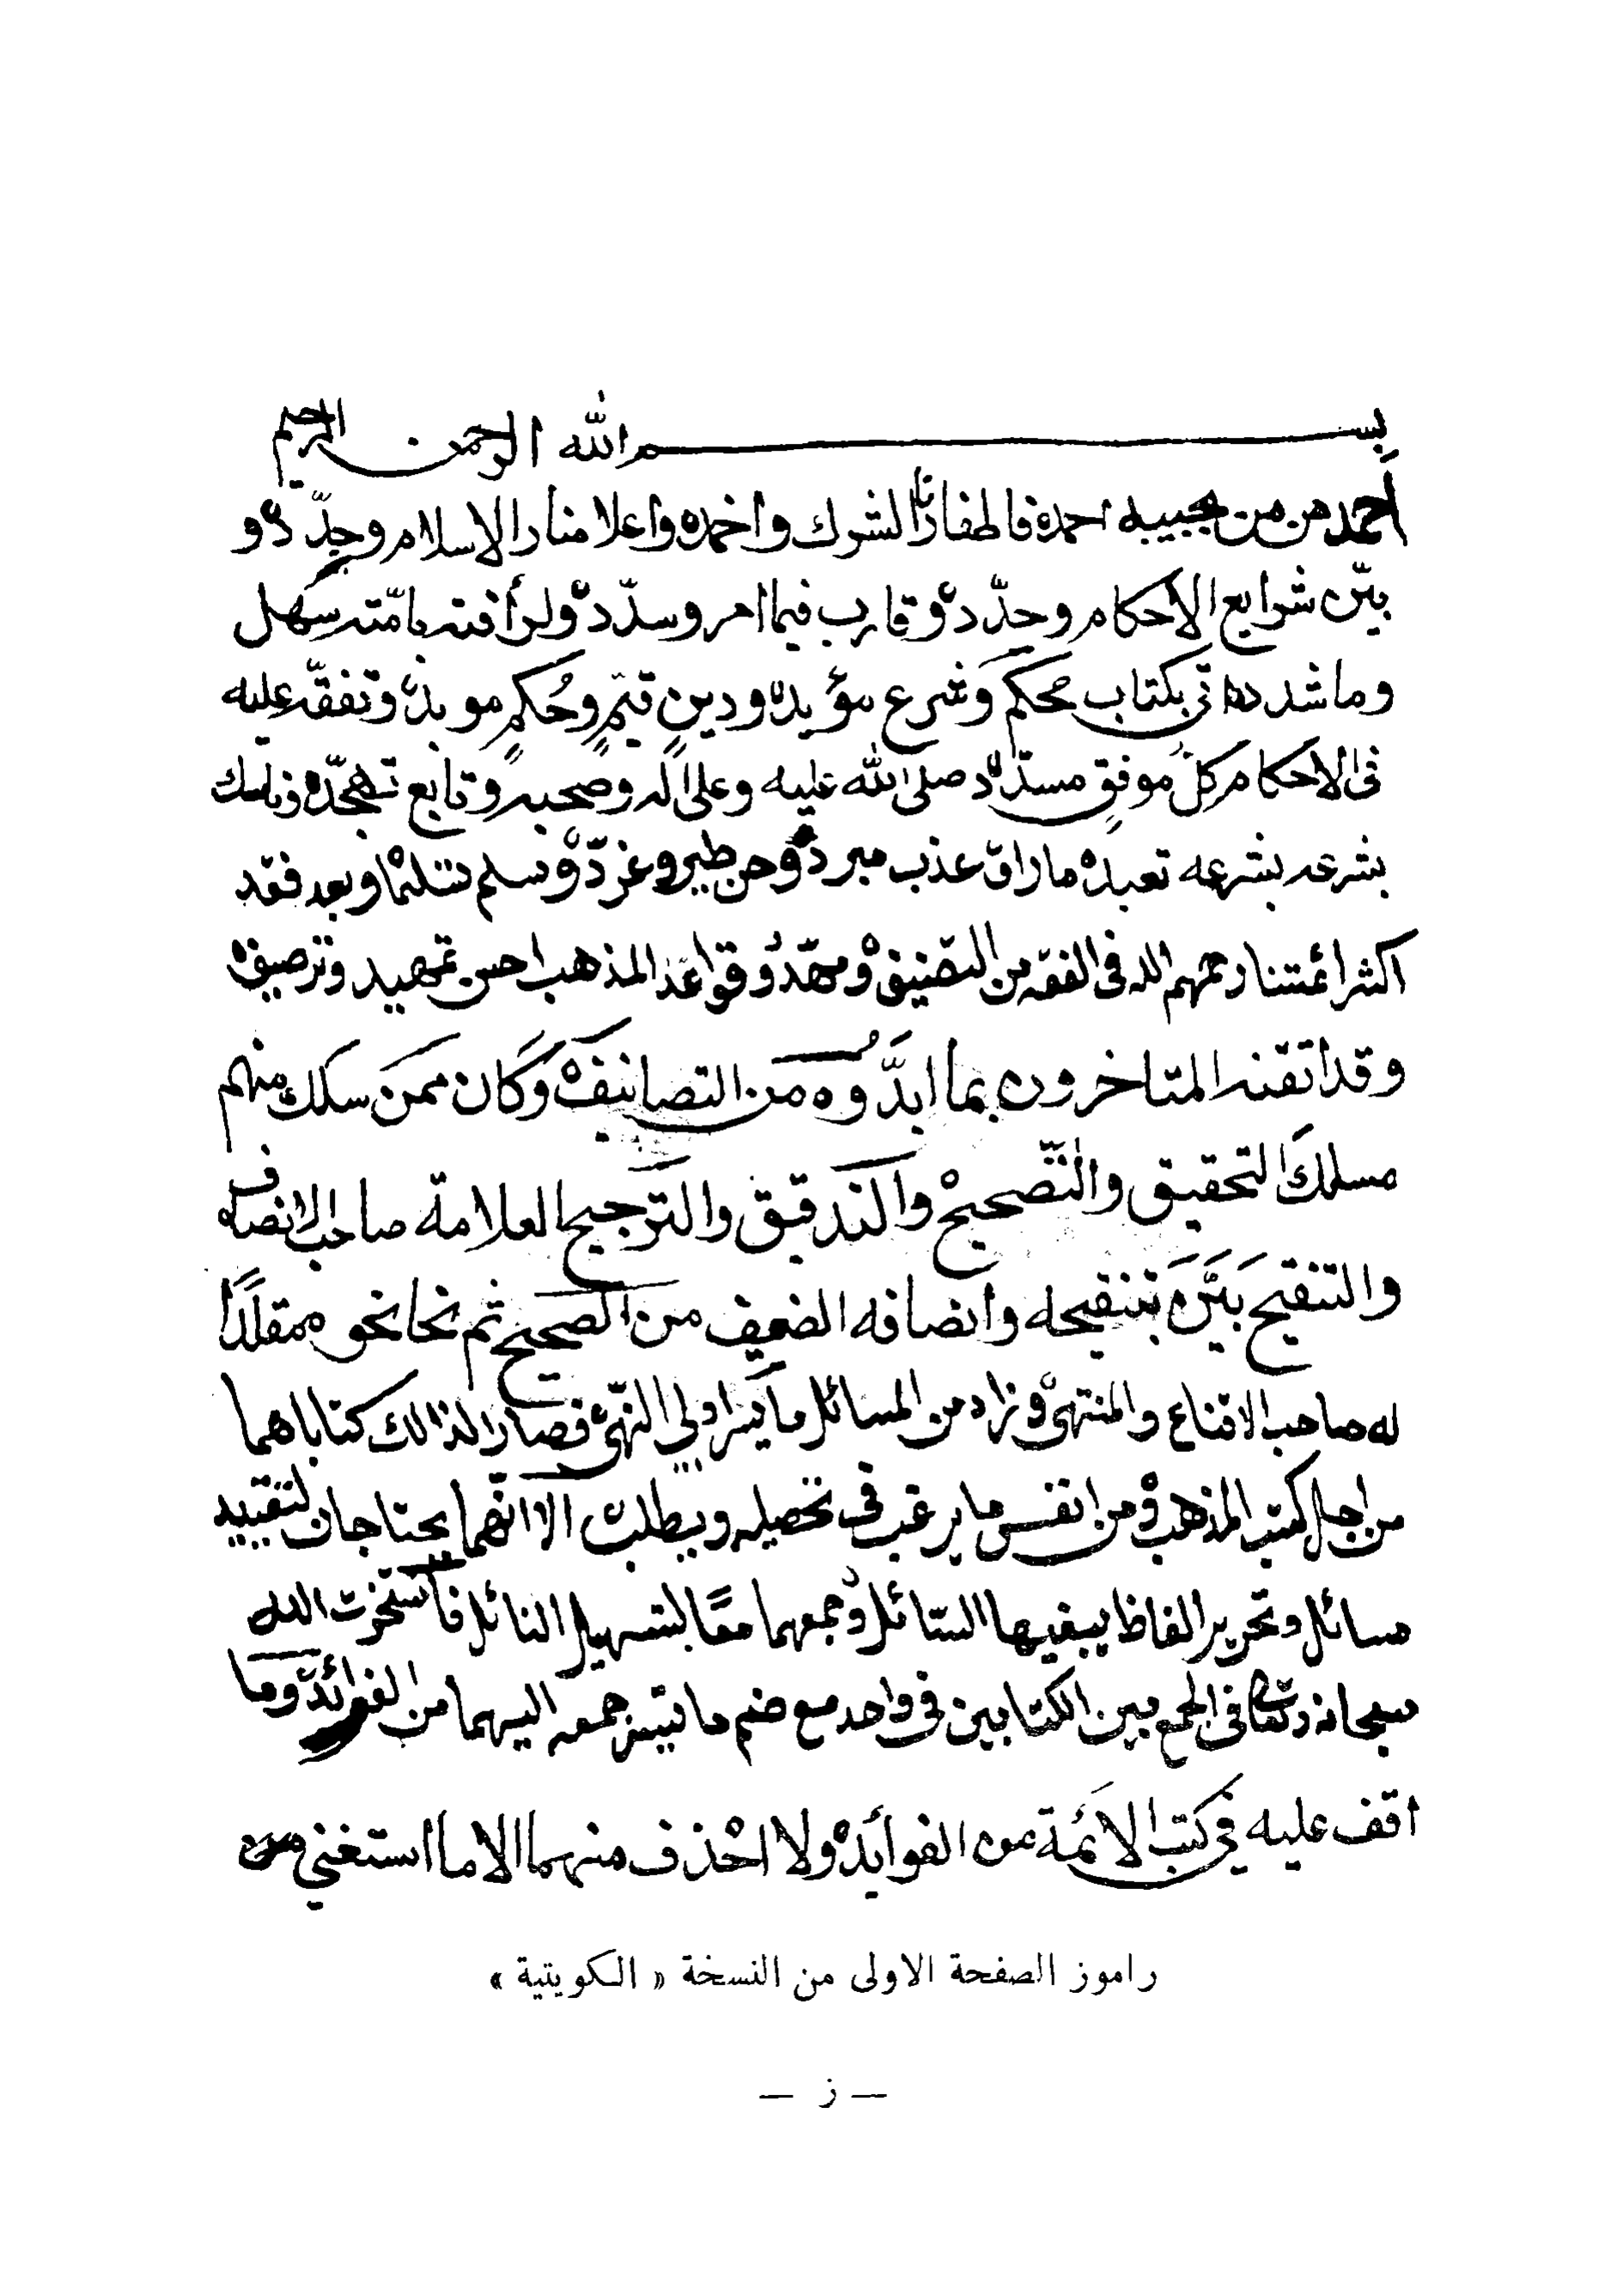 بسم الله الرحمن الرحيم
أحمد من من بحبيبه احمده فاطفا نار الشرك واخمده واعلا منار الاسلام وجدّده و
بيّن شرايع الاحكام وحدّده وقارب فيما امر وسدّده ولرأفته بامّته سهل
وما شدده اتى بكتاب محكم وشرع مؤيده ودينٍ قيّمٍ وحُكمٍ موبده وتفقّه عليه
في الاحكام كلّ موفقٍ مسدّده صلى الله عليه وعلى اله وصحبه وتابع تهجّده وناسك
بشرعه بشرعه تعبده ما راق عذب مبرده وحن طير وغرّده وسلم تسليما وبعد فقد
اكثر ائمتنا رحمهم الله في الفقه من التصنيف ومهّدو قواعد المذهب احسن تمهيد وترصيف
وقد اتقنه المتاخرون بما ابدَّوه من التصانيف وكان ممن سلك منهم
مسلك التحقيق والتّصحيح والتدقيق والترجيح العلامة صاحب الانصاف
والتنقيح بَيَّن بتنقيحه وانصافه الضعيف من الصحيح ثم نحا نحو مقلدًا
له صاحب الاقناع والمنتهى وزاد من المسائل ما يسر اولي النّهى فصار لذالك كتاباهما
من اجل كتب المذهب ومن انفس ما يرغب في تحصيله ويطلب الا انّهما يحتاجان لتقييد
مسائل وتحرير الفاظ يبغيها السّائل وجمعهما معًا لتسهيل النائل فاستخرت الله
سبحانه وتعالى في الجمع بين الكتابين في واحد مع ضم ما تيسر جمعه اليهما من الفوائد وما
اقف عليه في كتب الائمة من الفوايد ولا احذف منهما الا ما استغني عنه
راموز الصفحة الاولى من النسخة « الكويتية »
— ز —